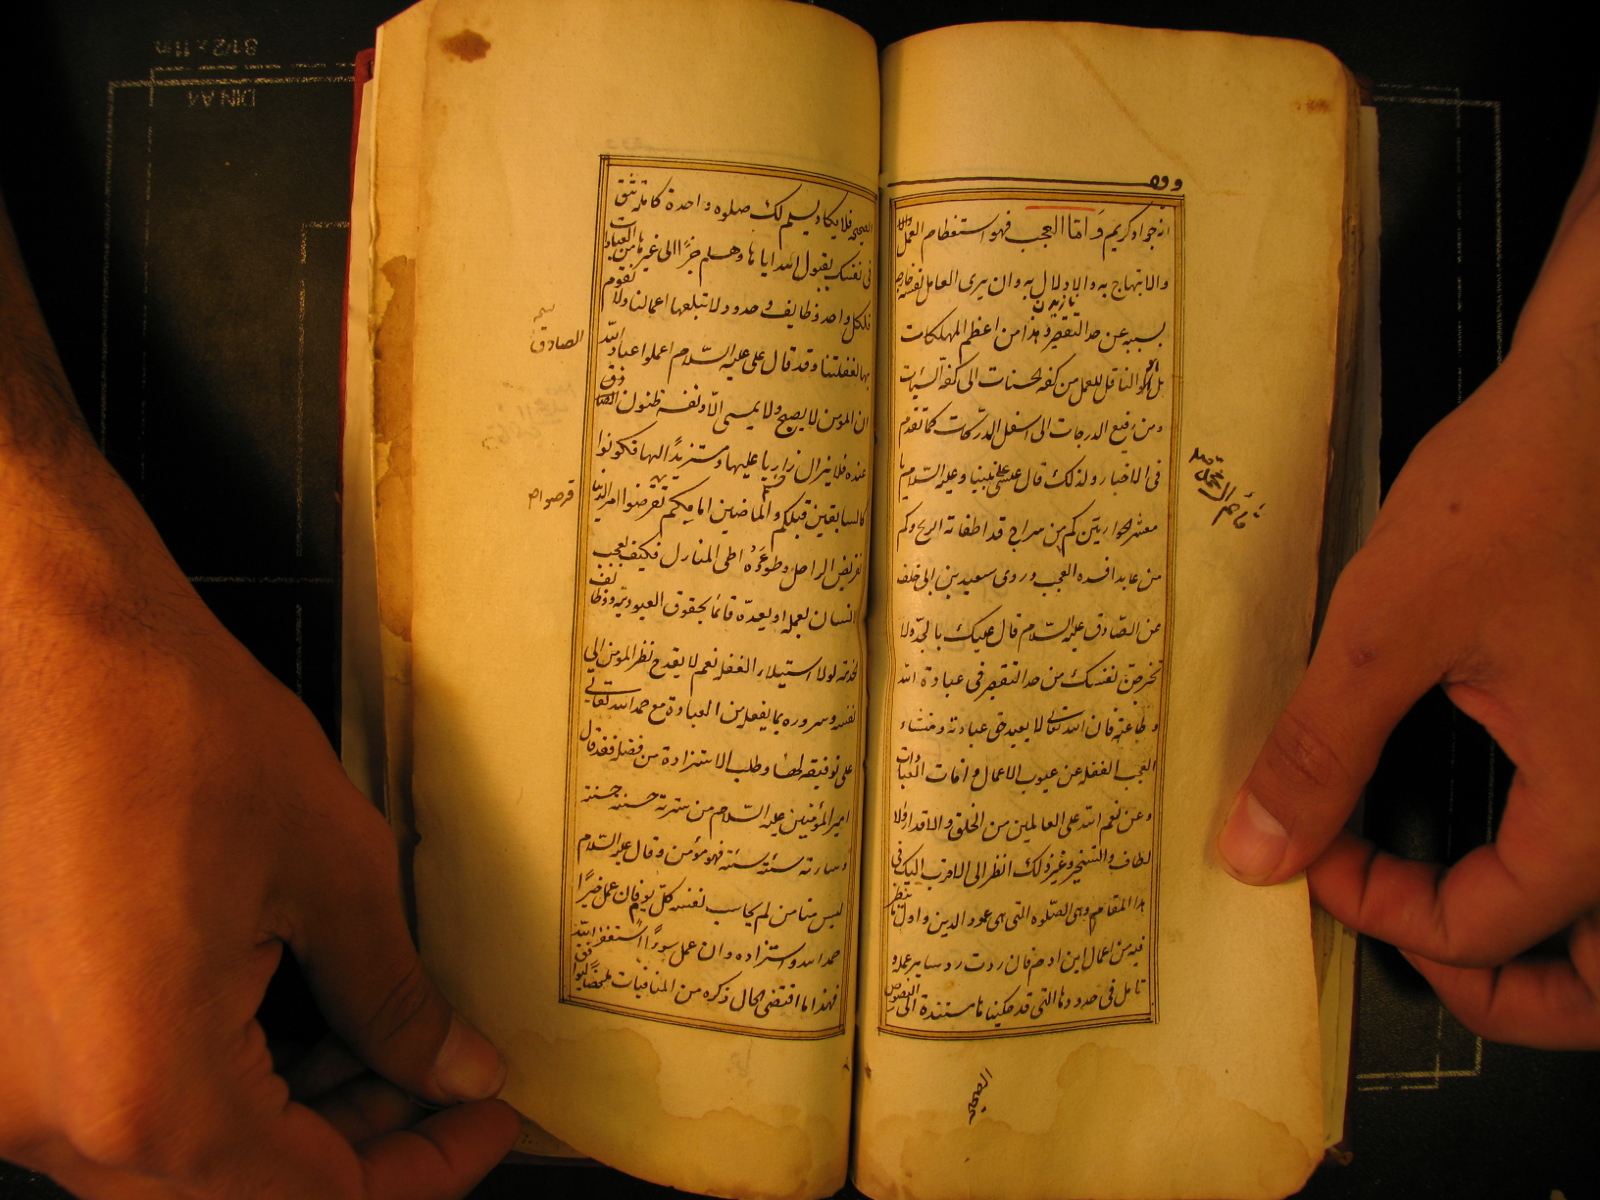 انه جواد كريم وَ امّا العجب فهو استعظام العمل
والابتهاج به والادلال به وان يرى العامل نفسه خارجا
بسببه عن حد التقصير وهذا من اعظم المهلكات
بل هو الناقل للعمل من كفه الحسنات الى كفة السيئات
ومن رفيع الدرجات الى اسفل الدركات كما تقدم
فى الاخبار ولذلك قال عيسى على نبينا وعليه السلام يا
معشر الحواريين كم من سراج قد اطفاته الريح وكم
من عابد افسده العجب وروى سعيد بن ابى خلف
عن الصّادق عليه السّلام قال عليك بالجدّ ولا
تخرجنّ نفسك من حد التقصير فى عبادة الله
وطاعته فان الله تعالى لا يعبد حق عبادته ومنشاء
العجب الغفله عن عيوب الاعمال وافات العبادات
وعن نعم الله على العالمين من الخلق والاقدار والا
لطاف والتسخير وغير ذلك انظر الى الاقرب اليك فى
هذا المقام وهى الصّلوه التى هى عمود الدين واول ما ينظر
فيه من اعمال ابن ادم فان ردت رد ساير عمله و
تامل فى حدودها التى قد حكيناها مستندة الى النصوص
الصحيحه
الصحيحه فلا يكاد يسلم لك صلوه واحدة كاملة تثق
فى نفسك بقبول الله اياها وهلم جرًّا الى غيرها من العبادات
فلكل واحد وظايف وحدود لا تبلغها اعمالنا ولا نقوم
بها لغفلتنا وقد قال على عليه السّلام اعملوا عباد الله
ان المؤمن لا يصبح ولا يمسى الّا ونفسه ظنون
عنده فلا يزال زاريا عليها ومستزيدًا لها فكونوا
كالسابقين قبلكم والماضين امامكم تقرضوا من الدنيا
تقريض الراحل وطووها طى المنازل فكيف يعجب
الانسان بعمله او يعدّه قائما بحقوق العبودية ووظائف
الخدمة لولا استيلاء الغفله نعم لا يقدح نظر المؤمن الى
نفسه وسروره بما يفعله من العبادة مع حمد الله تعالى
على توفيقه لها وطلب الاستزادة من فضله فقد قال
امير المؤمنين عليه السّلام من سرته حسنته
وساءته سيئته فهو مؤمن وقال عليه السّلام
ليس منا من لم يحاسب نفسه كلّ يوم فان عمل خيرًا
حمد الله واستزاده وان عمل سوءًا استغفر الله
فهذا ما اقتضى الحال ذكره من المنافيات
الصادق
قرضوا